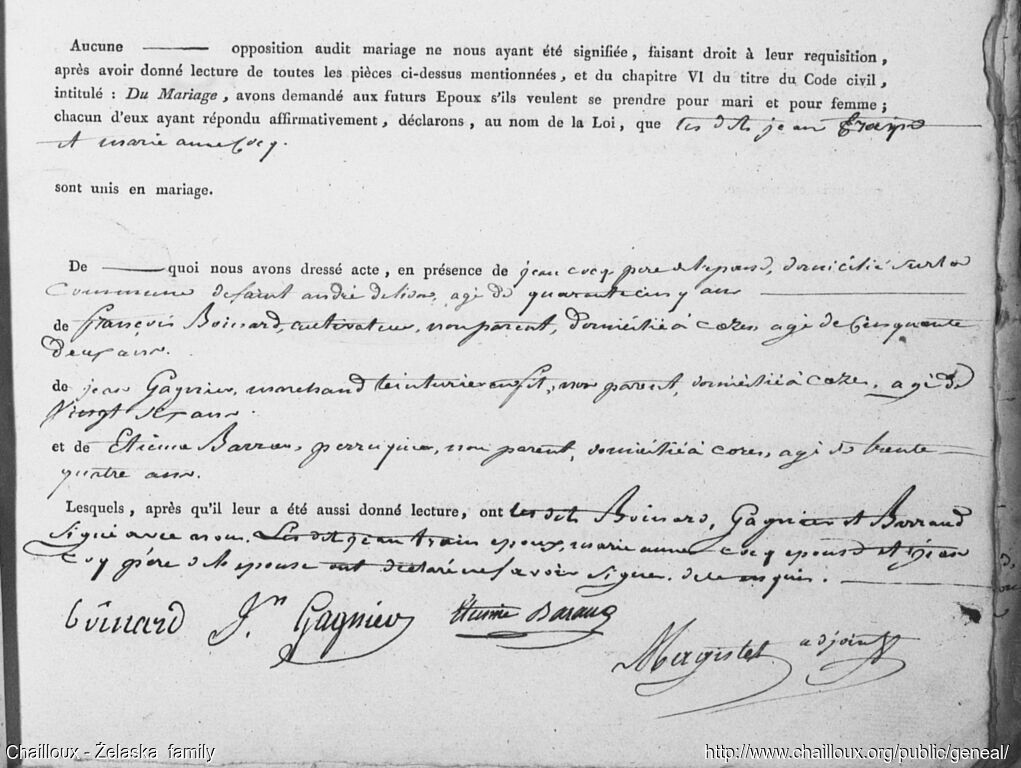 Aucune ——— opposition audit mariage ne nous ayant été signifiée, faisant droit à leur requisition,
après avoir donné lecture de toutes les pièces ci-dessus mentionnées, et du chapitre VI du titre du Code civil,
intitulé : Du Mariage, avons demandé aux futurs Epoux s'ils veulent se prendre pour mari et pour femme ;
chacun d'eux ayant répondu affirmativement, déclarons, au nom de la Loi, que les dits jean
et marie anne Cocq.
sont unis en mariage.
De ——— quoi nous avons dressé acte, en présence de jean cocq pere de lepouse, domicilié sur la
Commune de saint andré de lidon, agé de quarante cinq ans ———
de françois Boissard, cultivateur, non parent, domicilié à cozes, agé de Cinquante
deux ans.
de jean Gagnier, marchand teinturier en fil, non parent, domicilié à cozes, agé de
Vingt ans.
et de Etienne Barraud, perruquier, non parent, domicilié à cozes, agé de trente
quatre ans.
Lesquels, après qu'il leur a été aussi donné lecture, ont les dits Boissard, Gagnier et Barraud
Signé avec nous. Les dit jean epoux, marie anne Cocq epouse et jean
Cocq père de lepouse ont declaré ne savoir signer. de ce enquis.
Boissard Jn Gagnier Etienne Baraud
Magistel adjoint
Chailloux - Żelaska family
http://www.chailloux.org/public/geneal/